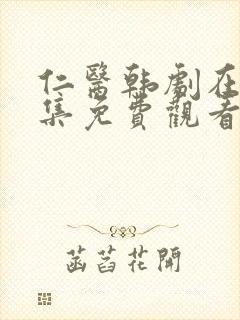 仁醫韩劇在
集免費觀看
菡萏花開